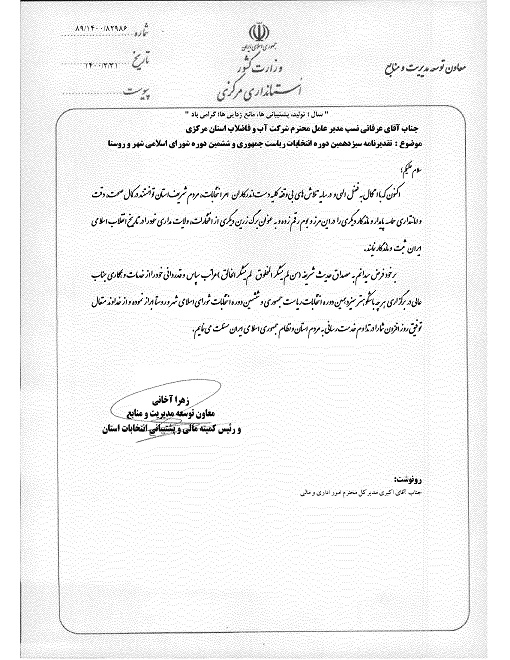 جمهوری اسلامی ایران
وزارت کشور
استانداری مرکزی
معاون توسعه مدیریت و منابع
شماره ۸۹/۱۴۰۰/۸۲۹۸۶
تاریخ ۱۴۰۰/۳/۳۱
پیوست
" سال : تولید، پشتیبانی ها، مانع زدایی ها؛ گرامی باد "
جناب آقای عرفانی نسب مدیر عامل محترم شرکت آب و فاضلاب استان مرکزی
موضوع : تقدیرنامه سیزدهمین دوره انتخابات ریاست جمهوری و ششمین دوره شورای اسلامی شهر و روستا
سلام علیکم؛
اکنون که با اتکال به فضل الهی و در سایه تلاش های بی وقفه کلیه دست اندرکاران امر انتخابات، مردم شریف استان توانستند در کمال صحت، دقت
و امانتداری حماسه پایدار و ماندگار دیگری را در این مرز و بوم رقم زده و به عنوان برگ زرین دیگری از افتخارات، ولایت مداری خود را در تاریخ انقلاب اسلامی
ایران ثبت و ماندگار نمایند.
بر خود فرض میدانم به مصداق حدیث شریفه من لم یشکر المخلوق لم یشکر الخالق مراتب سپاس و قدردانی خود را از خدمات و همکاری جناب
عالی در برگزاری هر چه باشکوهتر سیزدهمین دوره انتخابات ریاست جمهوری و ششمین دوره انتخابات شورای اسلامی شهر و روستا ابراز نموده و از خداوند متعال
توفیق روز افزون شما را در تداوم خدمت رسانی به مردم استان و نظام جمهوری اسلامی ایران مسئلت می نمایم.
زهرا آخانی
معاون توسعه مدیریت و منابع
و رئیس کمیته مالی و پشتیبانی انتخابات استان
رونوشت:
جناب آقای اکبری مدیر کل محترم امور اداری و مالی